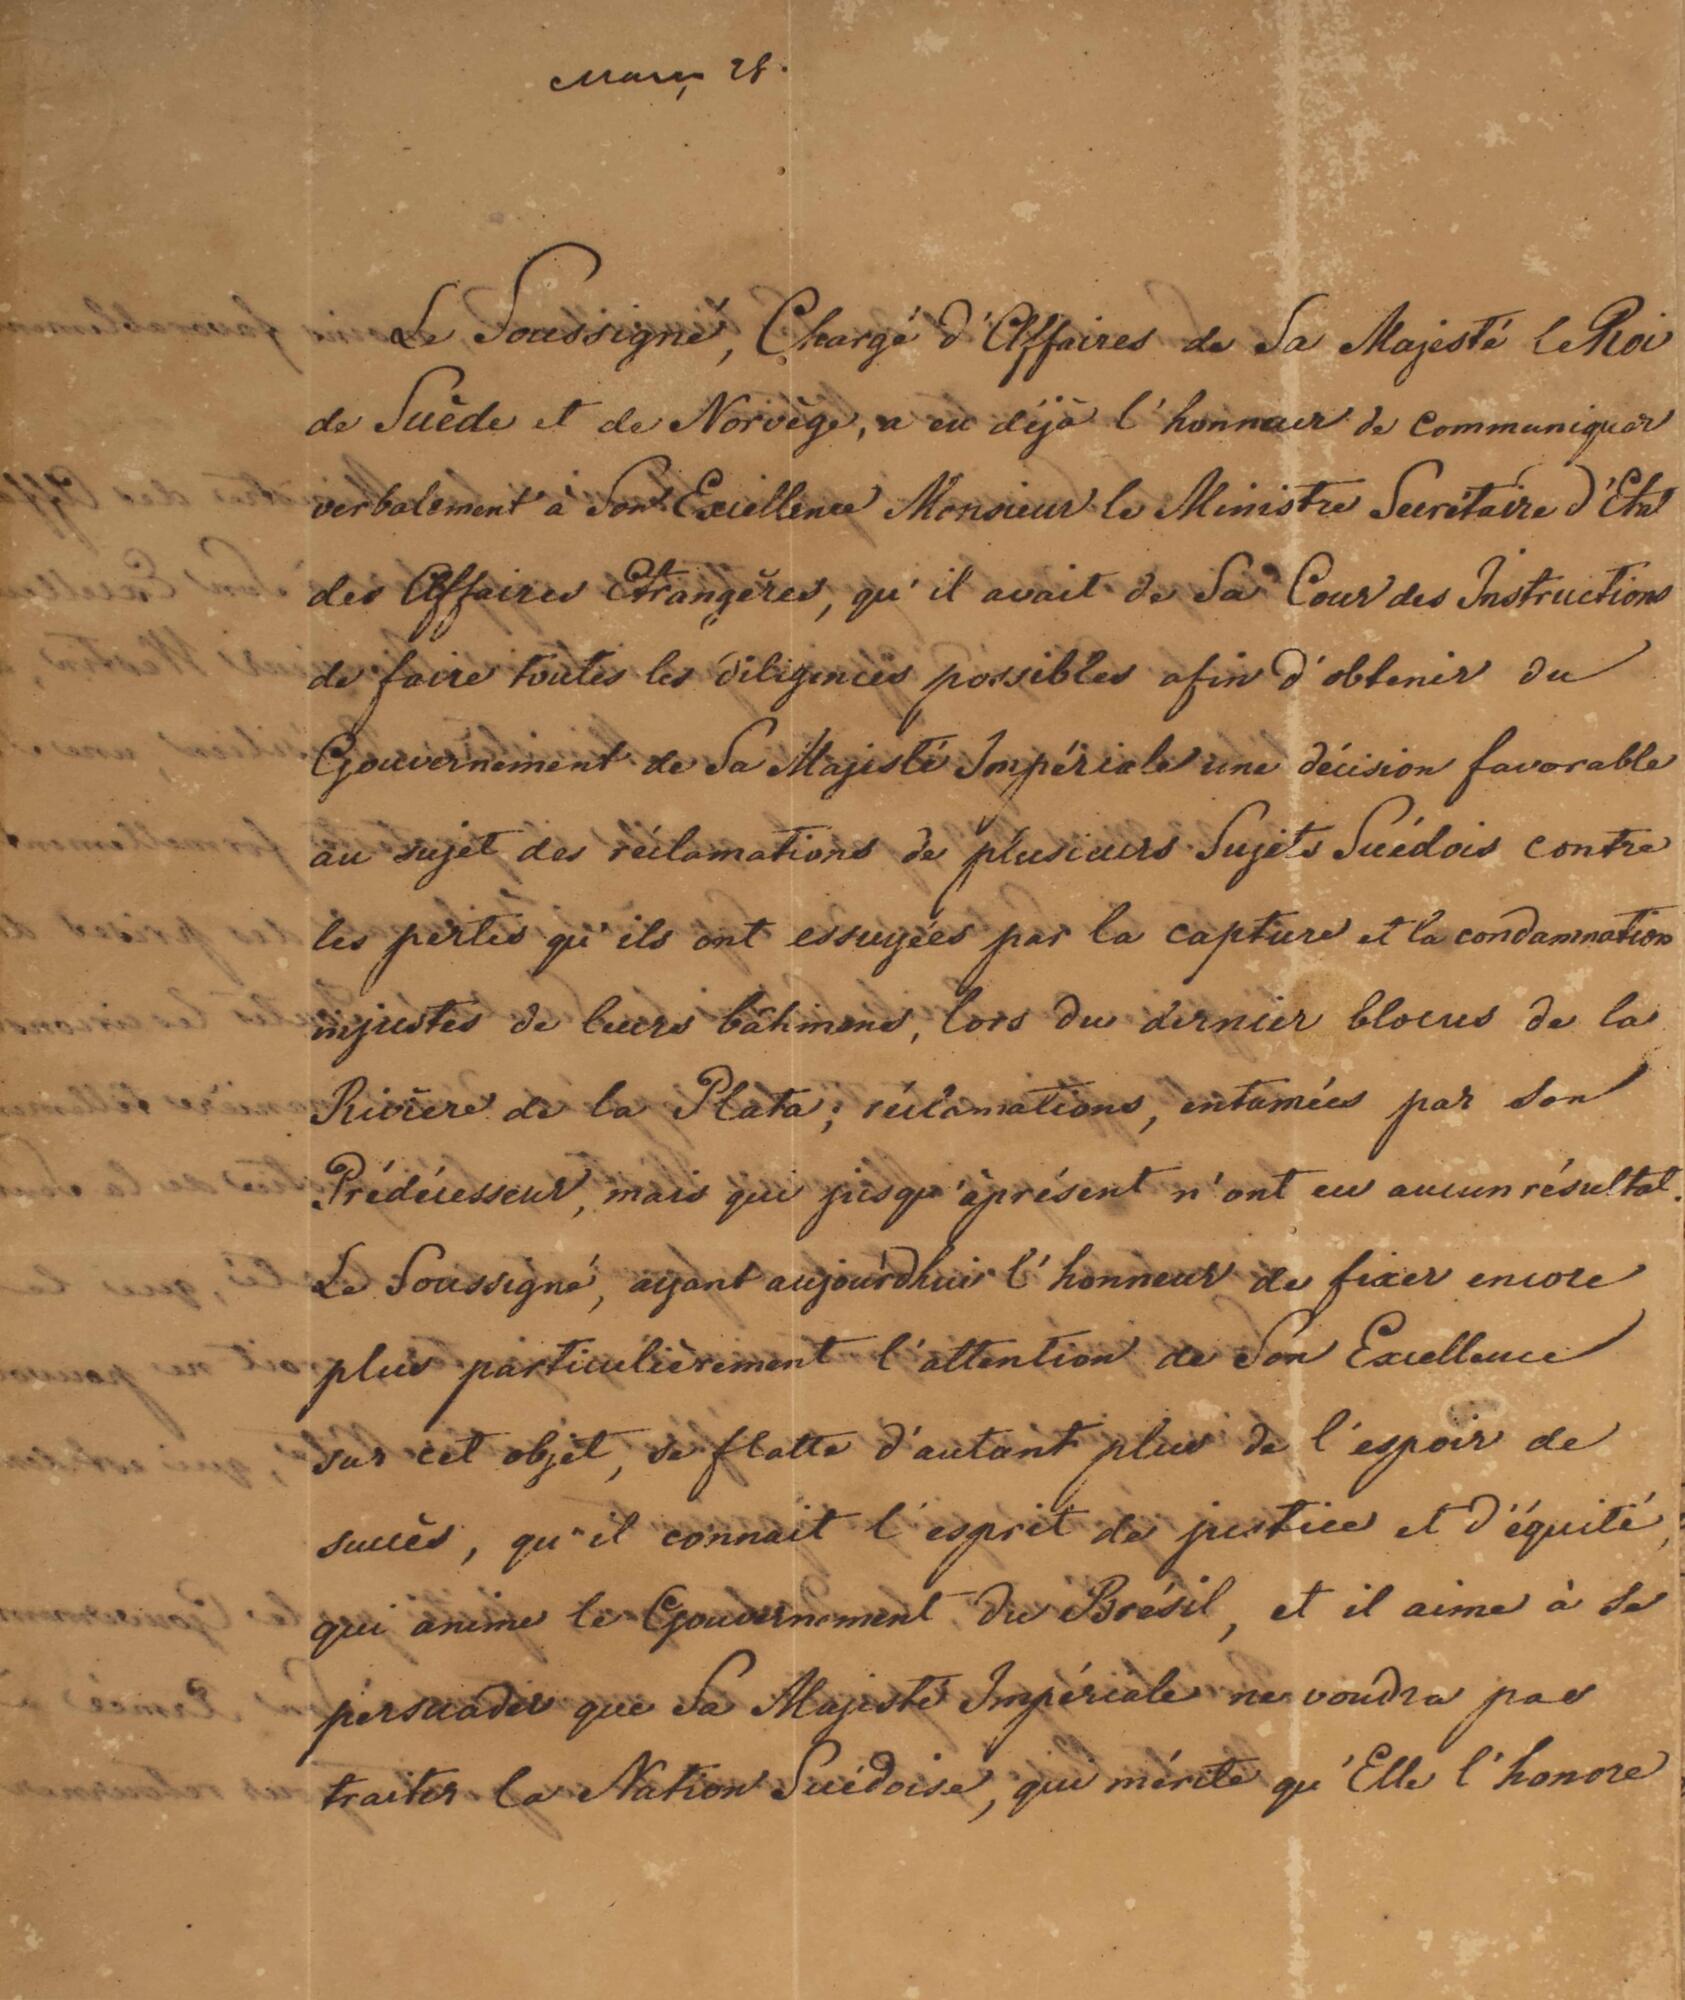 Março 28.
Le Soussigné, Chargé d'Affaires de Sa Majesté le Roi
de Suède et de Norvège, a eu déjà l'honneur de communiquer
verbalement à Son Excellence Monsieur le Ministre Secrétaire d'Etat
des Affaires Etrangères, qu'il avait de Sa Cour des Instructions
de faire toutes les diligences possibles afin d'obtenir du
Gouvernement de Sa Majesté Impériale une décision favorable
au sujet des réclamations de plusieurs Sujets Suédois contre
les pertes qu'ils ont essuyées par la capture et la condamnation
injustes de leurs bâtimens, lors du dernier blocus de la
Rivière de la Plata; réclamations, entamées par son
Prédécesseur, mais qui jusqu'àprésent n'ont eu aucun résultat.
Le Soussigné, ayant aujourdhui l'honneur de fixer encore
plus particulièrement l'attention de Son Excellence
sur cet objet, se flatte d'autant plus de l'espoir de
succès, qu'il connait l'esprit de justice et d'équité,
qui anime le Gouvernement du Brésil, et il aime à se
persuader que Sa Majesté Impériale ne voudra pas
traiter la Nation Suédoise, qui mérite qu'Elle l'honore